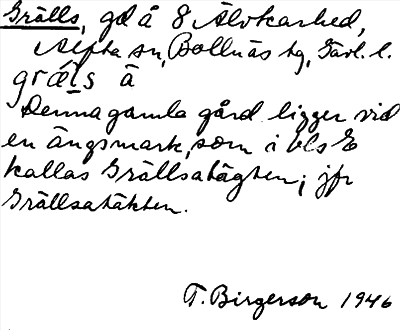 Grälls, gd å 8 Älvkarhed,
Alfta sn, Bollnäs tg, Gävl. l.
grä́ls ä
Denna gamla gård ligger vid
en ängsmark, som i bls E
kallas Grällsatägten; jfr
Grällsatäkten.
T. Birgerson 1946